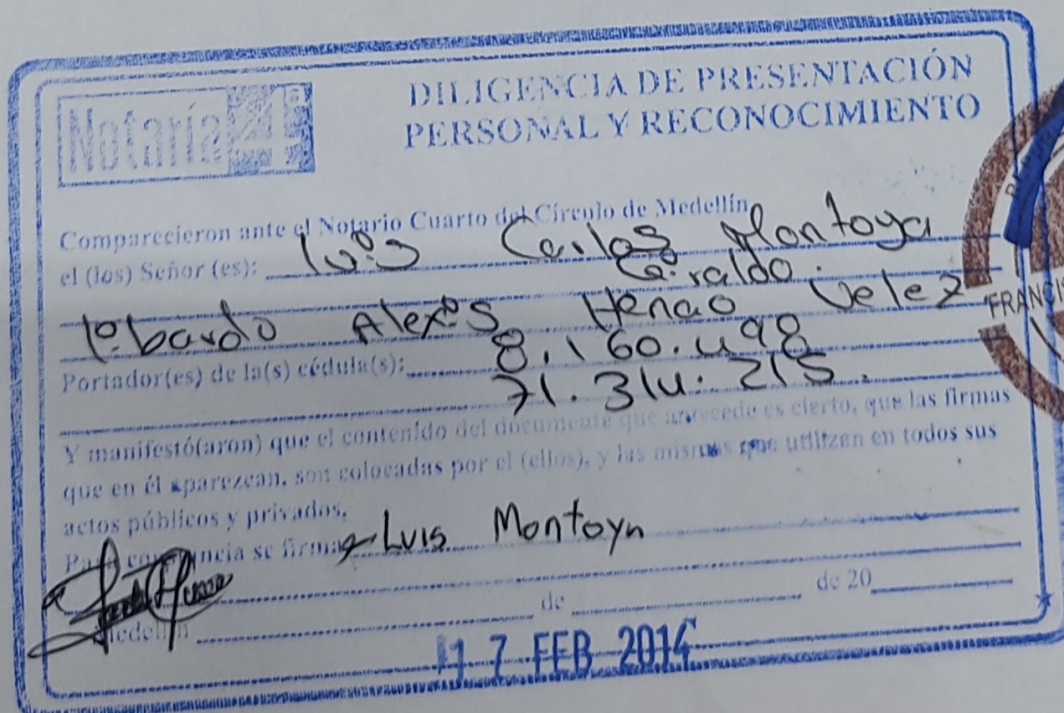 Notaría 4ª
DILIGENCIA DE PRESENTACIÓN
PERSONAL Y RECONOCIMIENTO
Comparecieron ante el Notario Cuarto del Círculo de Medellín
el (los) Señor (es): Luis Carlos Montoya
Giraldo.
Alexis Henao Velez
Portador(es) de la(s) cédula(s): 8.160.498
71.314.215.
Y manifestó(aron) que el contenido del documento que antecede es cierto, que las firmas
que en él aparezcan, son colocadas por el (ellos), y las mismas que utilizan en todos sus
actos públicos y privados.
Para constancia se firma Luis Montoya
Medellín de de 20
17 FEB 2014
FRANCIS